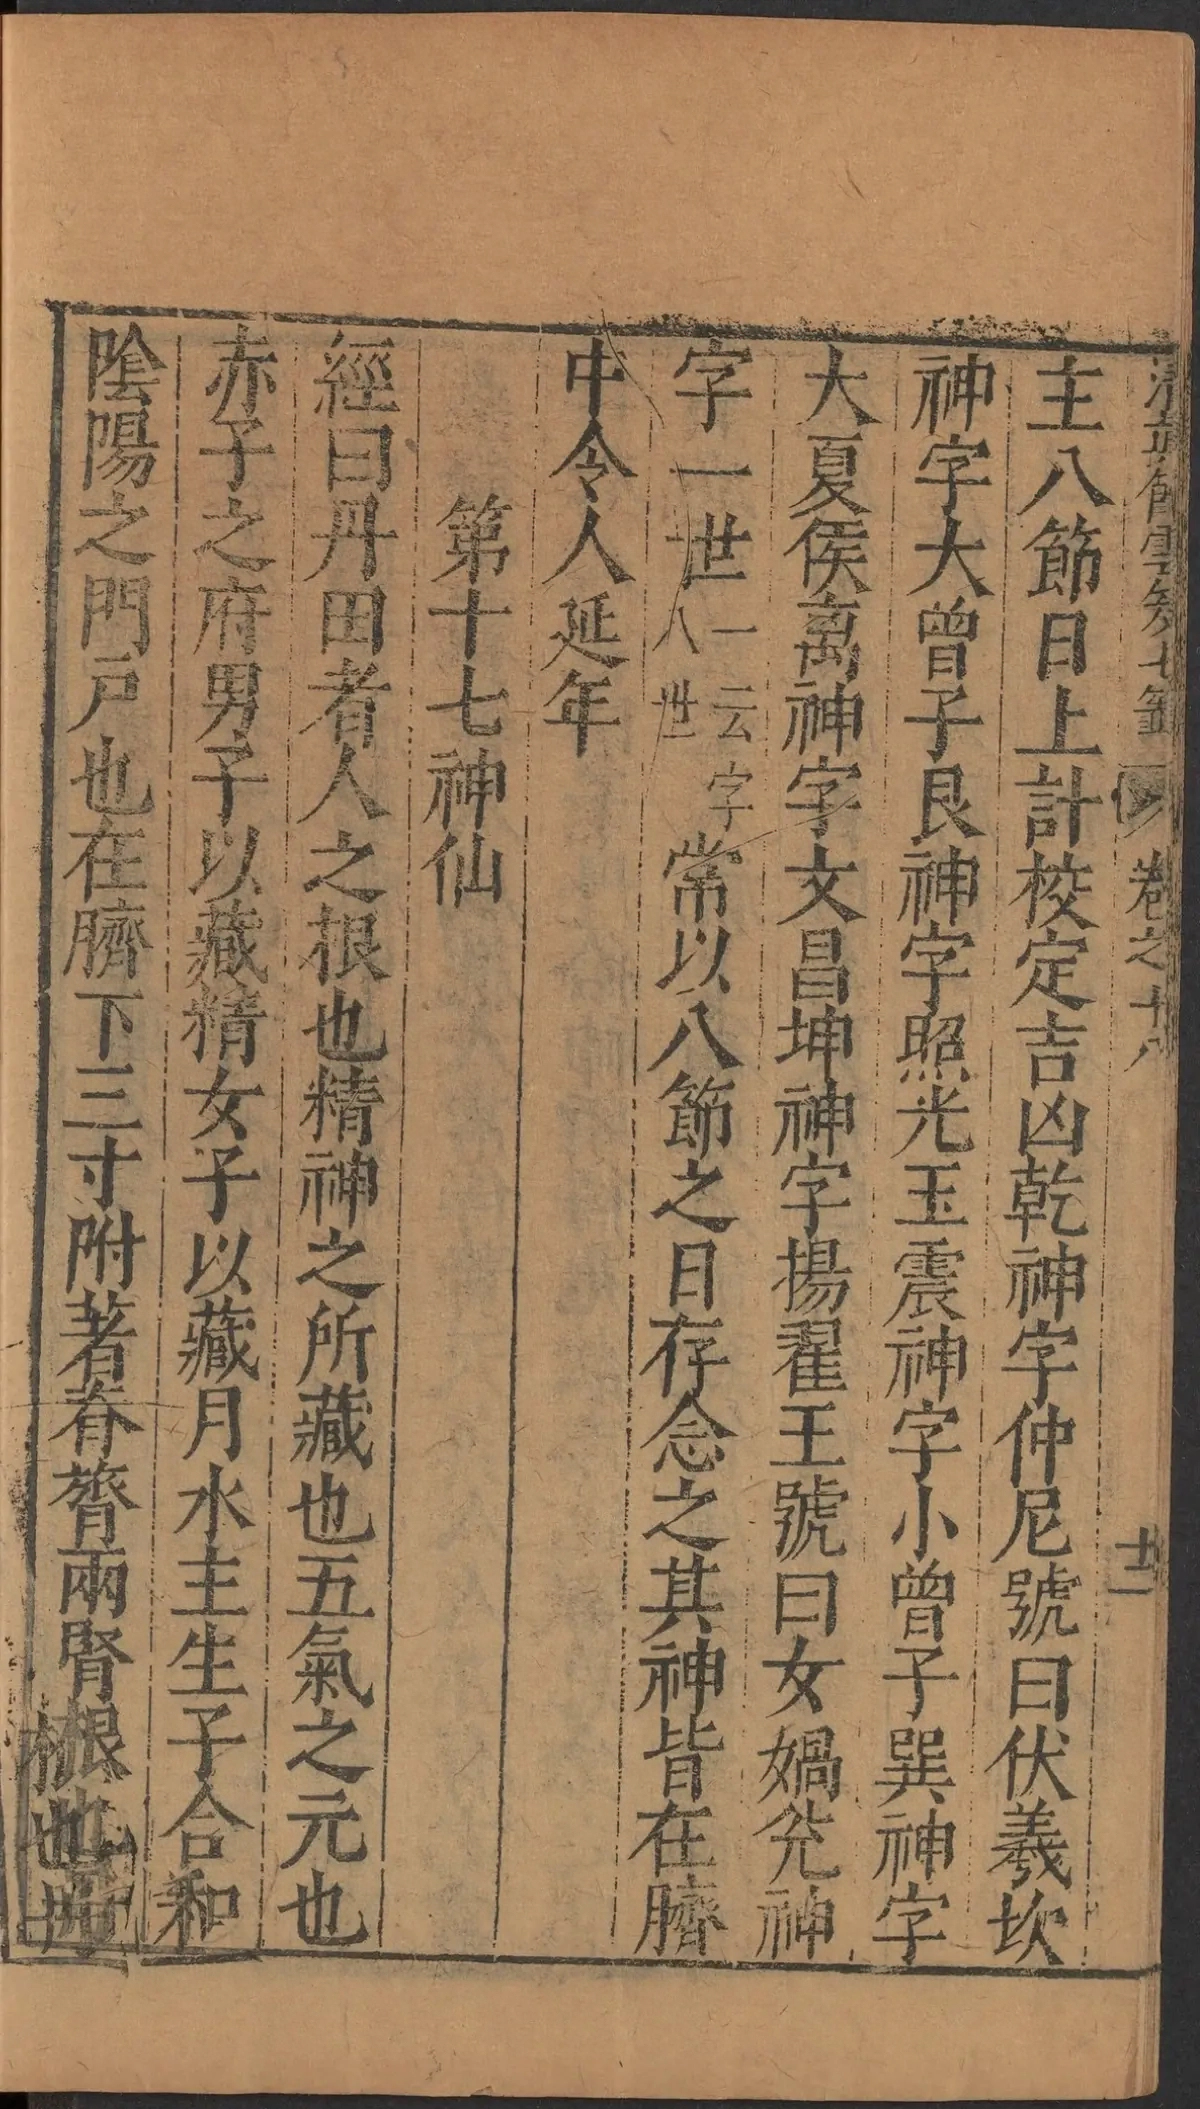 清眞館雲笈七籤 卷之十八 十二
主八節日上計校定吉凶乾神字仲尼號曰伏羲坎
神字大曾子艮神字照光玉震神字小曾子巽神字
大夏侯离神字文昌坤神字揚翟王號曰女媧兊神
字一世一云字八世常以八節之日存念之其神皆在臍
中令人延年
第十七神仙
經曰丹田者人之根也精神之所藏也五氣之元也
赤子之府男子以藏精女子以藏月水主生子合和
陰陽之門戸也在臍下三寸附著脊膂兩腎根也